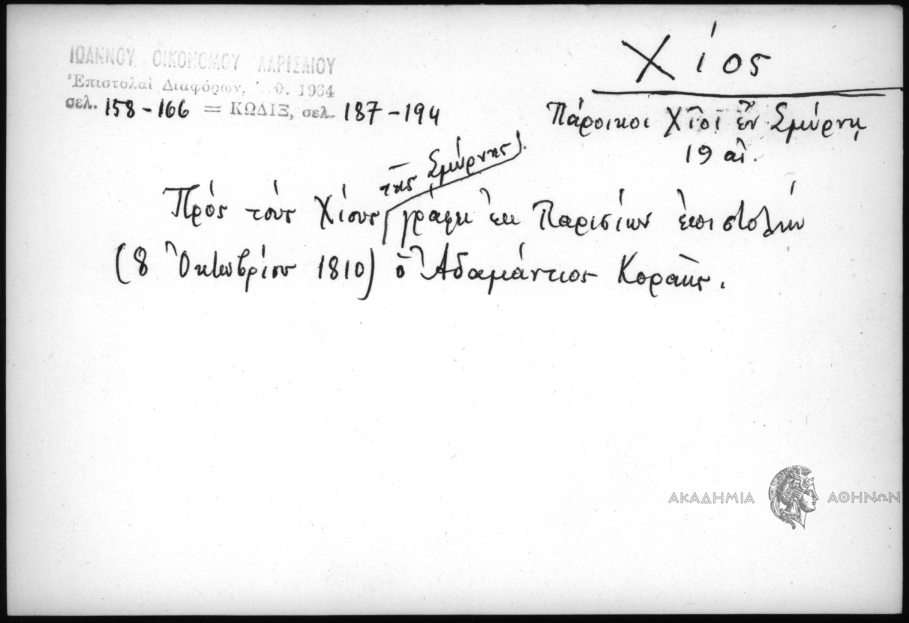 ΙΩΑΝΝΟΥ ΟΙΚΟΝΟΜΟΥ ΛΑΡΙΣΑΙΟΥ
Ἐπιστολαὶ Διαφόρων, 1964
σελ. 158-166 = ΚΩΔΙΞ, σελ. 187-194
Χίος
Πάροικοι Χῖοι ἐν Σμύρνῃ
19 αἰ.
τῆς Σμύρνης
Πρὸς τοὺς Χίους γράφει ἐκ Παρισίων ἐπιστολήν
(8 Ὀκτωβρίου 1810) ὁ Ἀδαμάντιος Κοραῆς.
ΑΚΑΔΗΜΙΑ ΑΘΗΝΩΝ